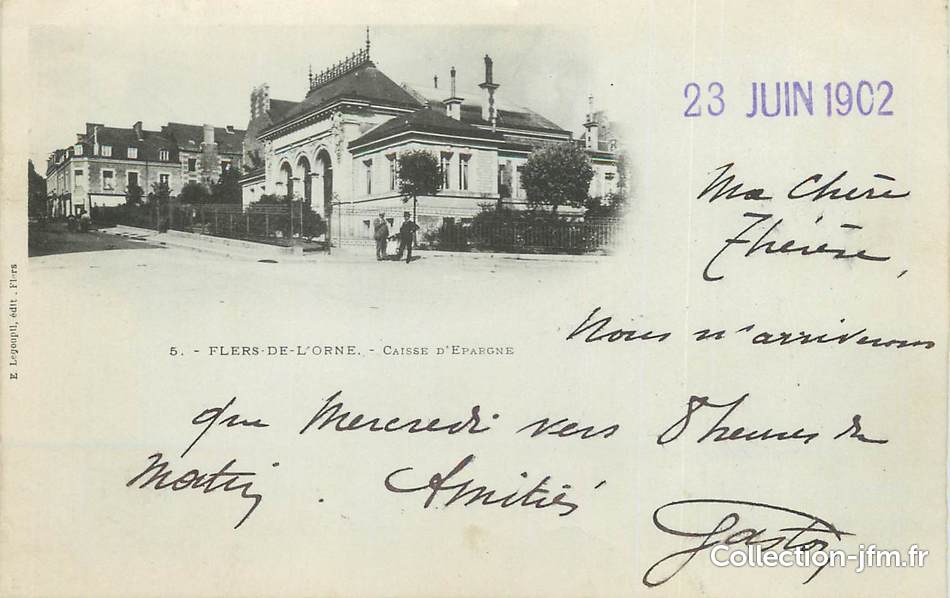 23 JUIN 1902
Ma Chère
Thérèse,
Nous n'arriverons
que Mercredi vers 8 heures du
Matin. Amitiés
Gaston
5. - FLERS-DE-L'ORNE. - CAISSE D'EPARGNE
E. Legoupil, édit. Flers
Collection-jfm.fr